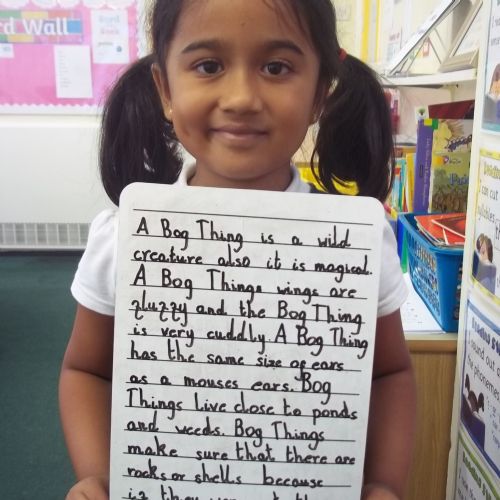 Word Wall
A Bog Thing is a wild
creature also it is magical.
A Bog Things wings are
fluffy and the Bog Thing
is very cuddly. A Bog Thing
has the same size of ears
as a mouses ears. Bog
Things live close to ponds
and weeds. Bog Things
make sure that there are
rocks or shells because
if they